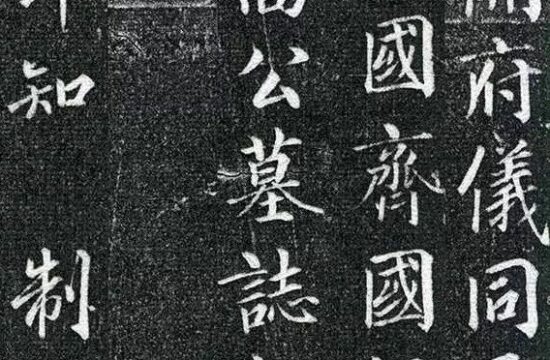 府儀同
國齊國
公墓誌
知制